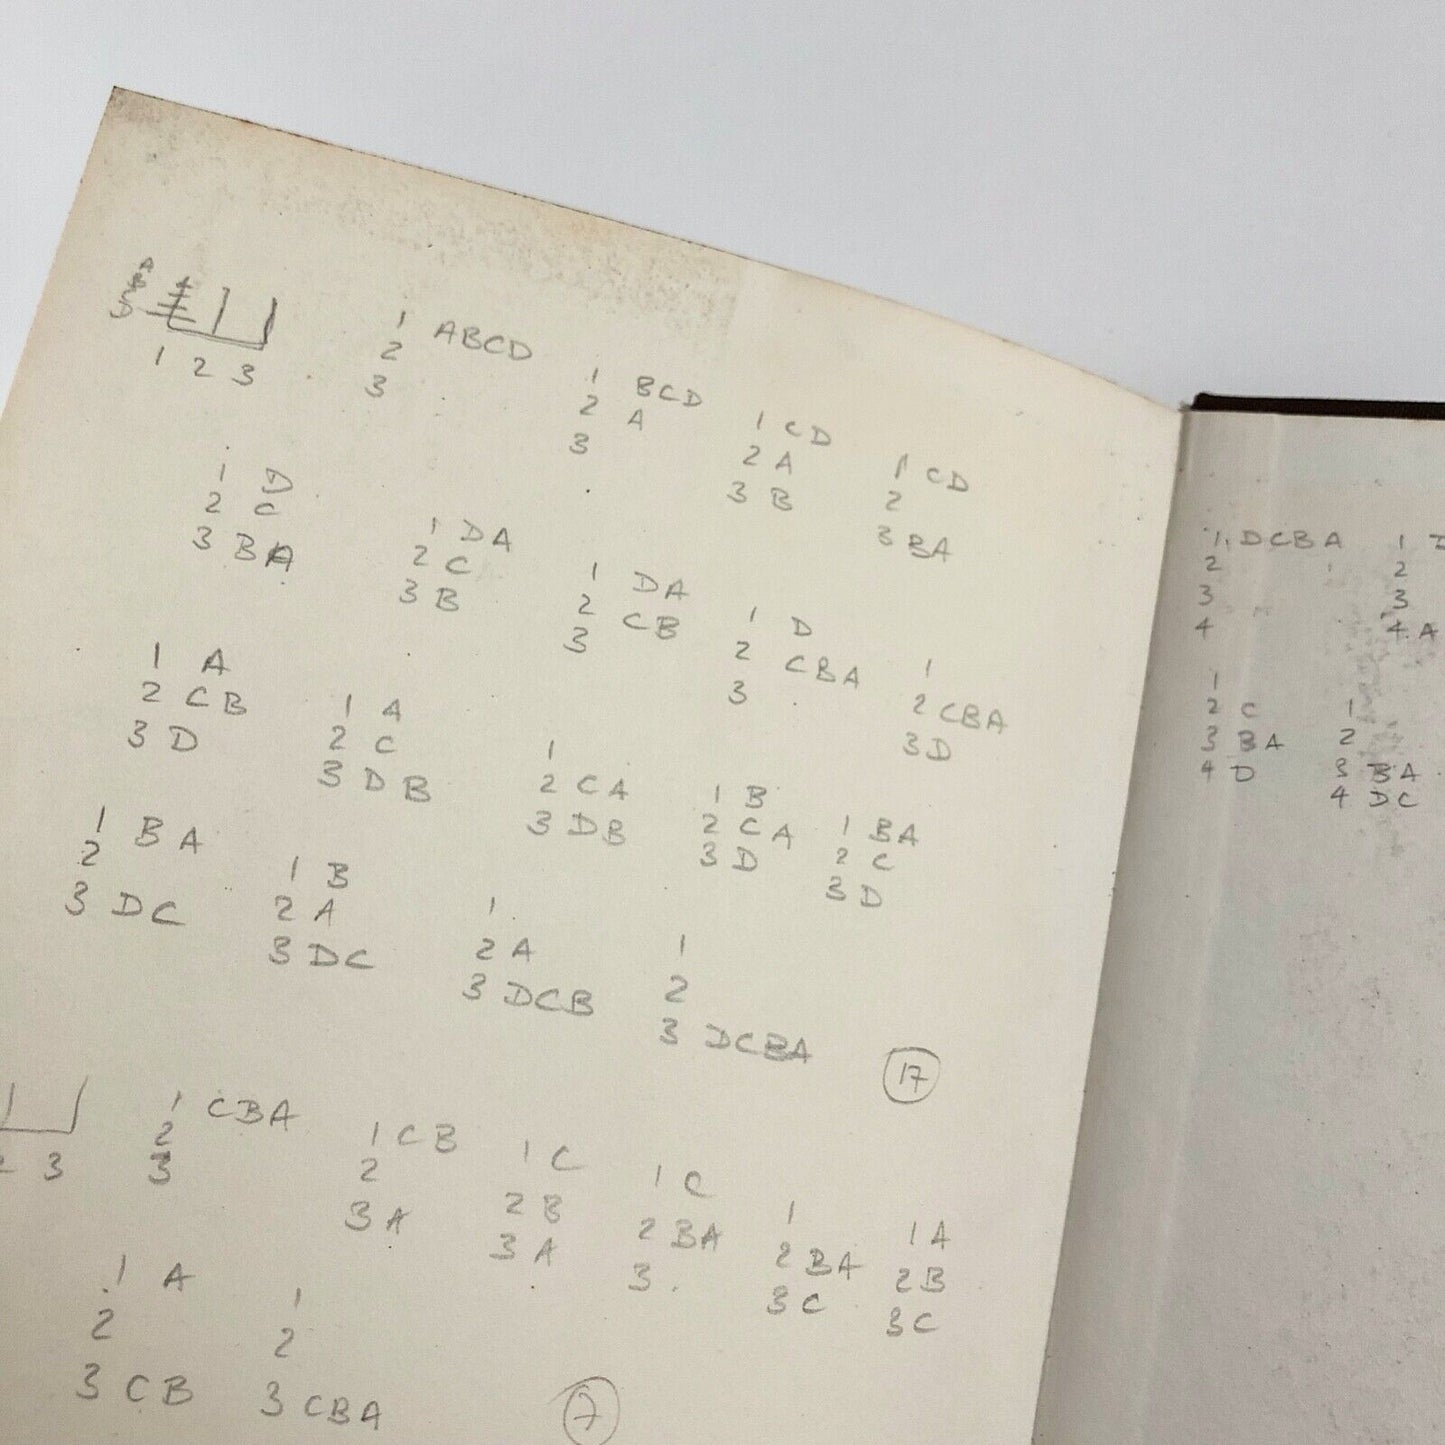 A
B
C
D
1 2 3
1
2 ABCD
3
1 BCD
2 A
3
1 CD
2 A
3 B
1 CD
2
3 BA
1 D
2 C
3 BA
1 DA
2 C
3 B
1 DA
2 CB
3
1 D
2 CBA
3
1
2 CBA
3 D
1 A
2 CB
3 D
1 A
2 C
3 DB
1
2 CA
3 DB
1 B
2 CA
3 D
1 BA
2 C
3 D
1 BA
2
3 DC
1 B
2 A
3 DC
1
2 A
3 DCB
1
2
3 DCBA
17
2 3
1 CBA
2
3
1 CB
2
3 A
1 C
2 B
3 A
1 C
2 BA
3
1
2 BA
3 C
1 A
2 B
3 C
1 A
2
3 CB
1
2
3 CBA
7
1 DCBA
2
3
4
1
2
3
4 A
1
2 C
3 BA
4 D
1
2
3 BA
4 DC